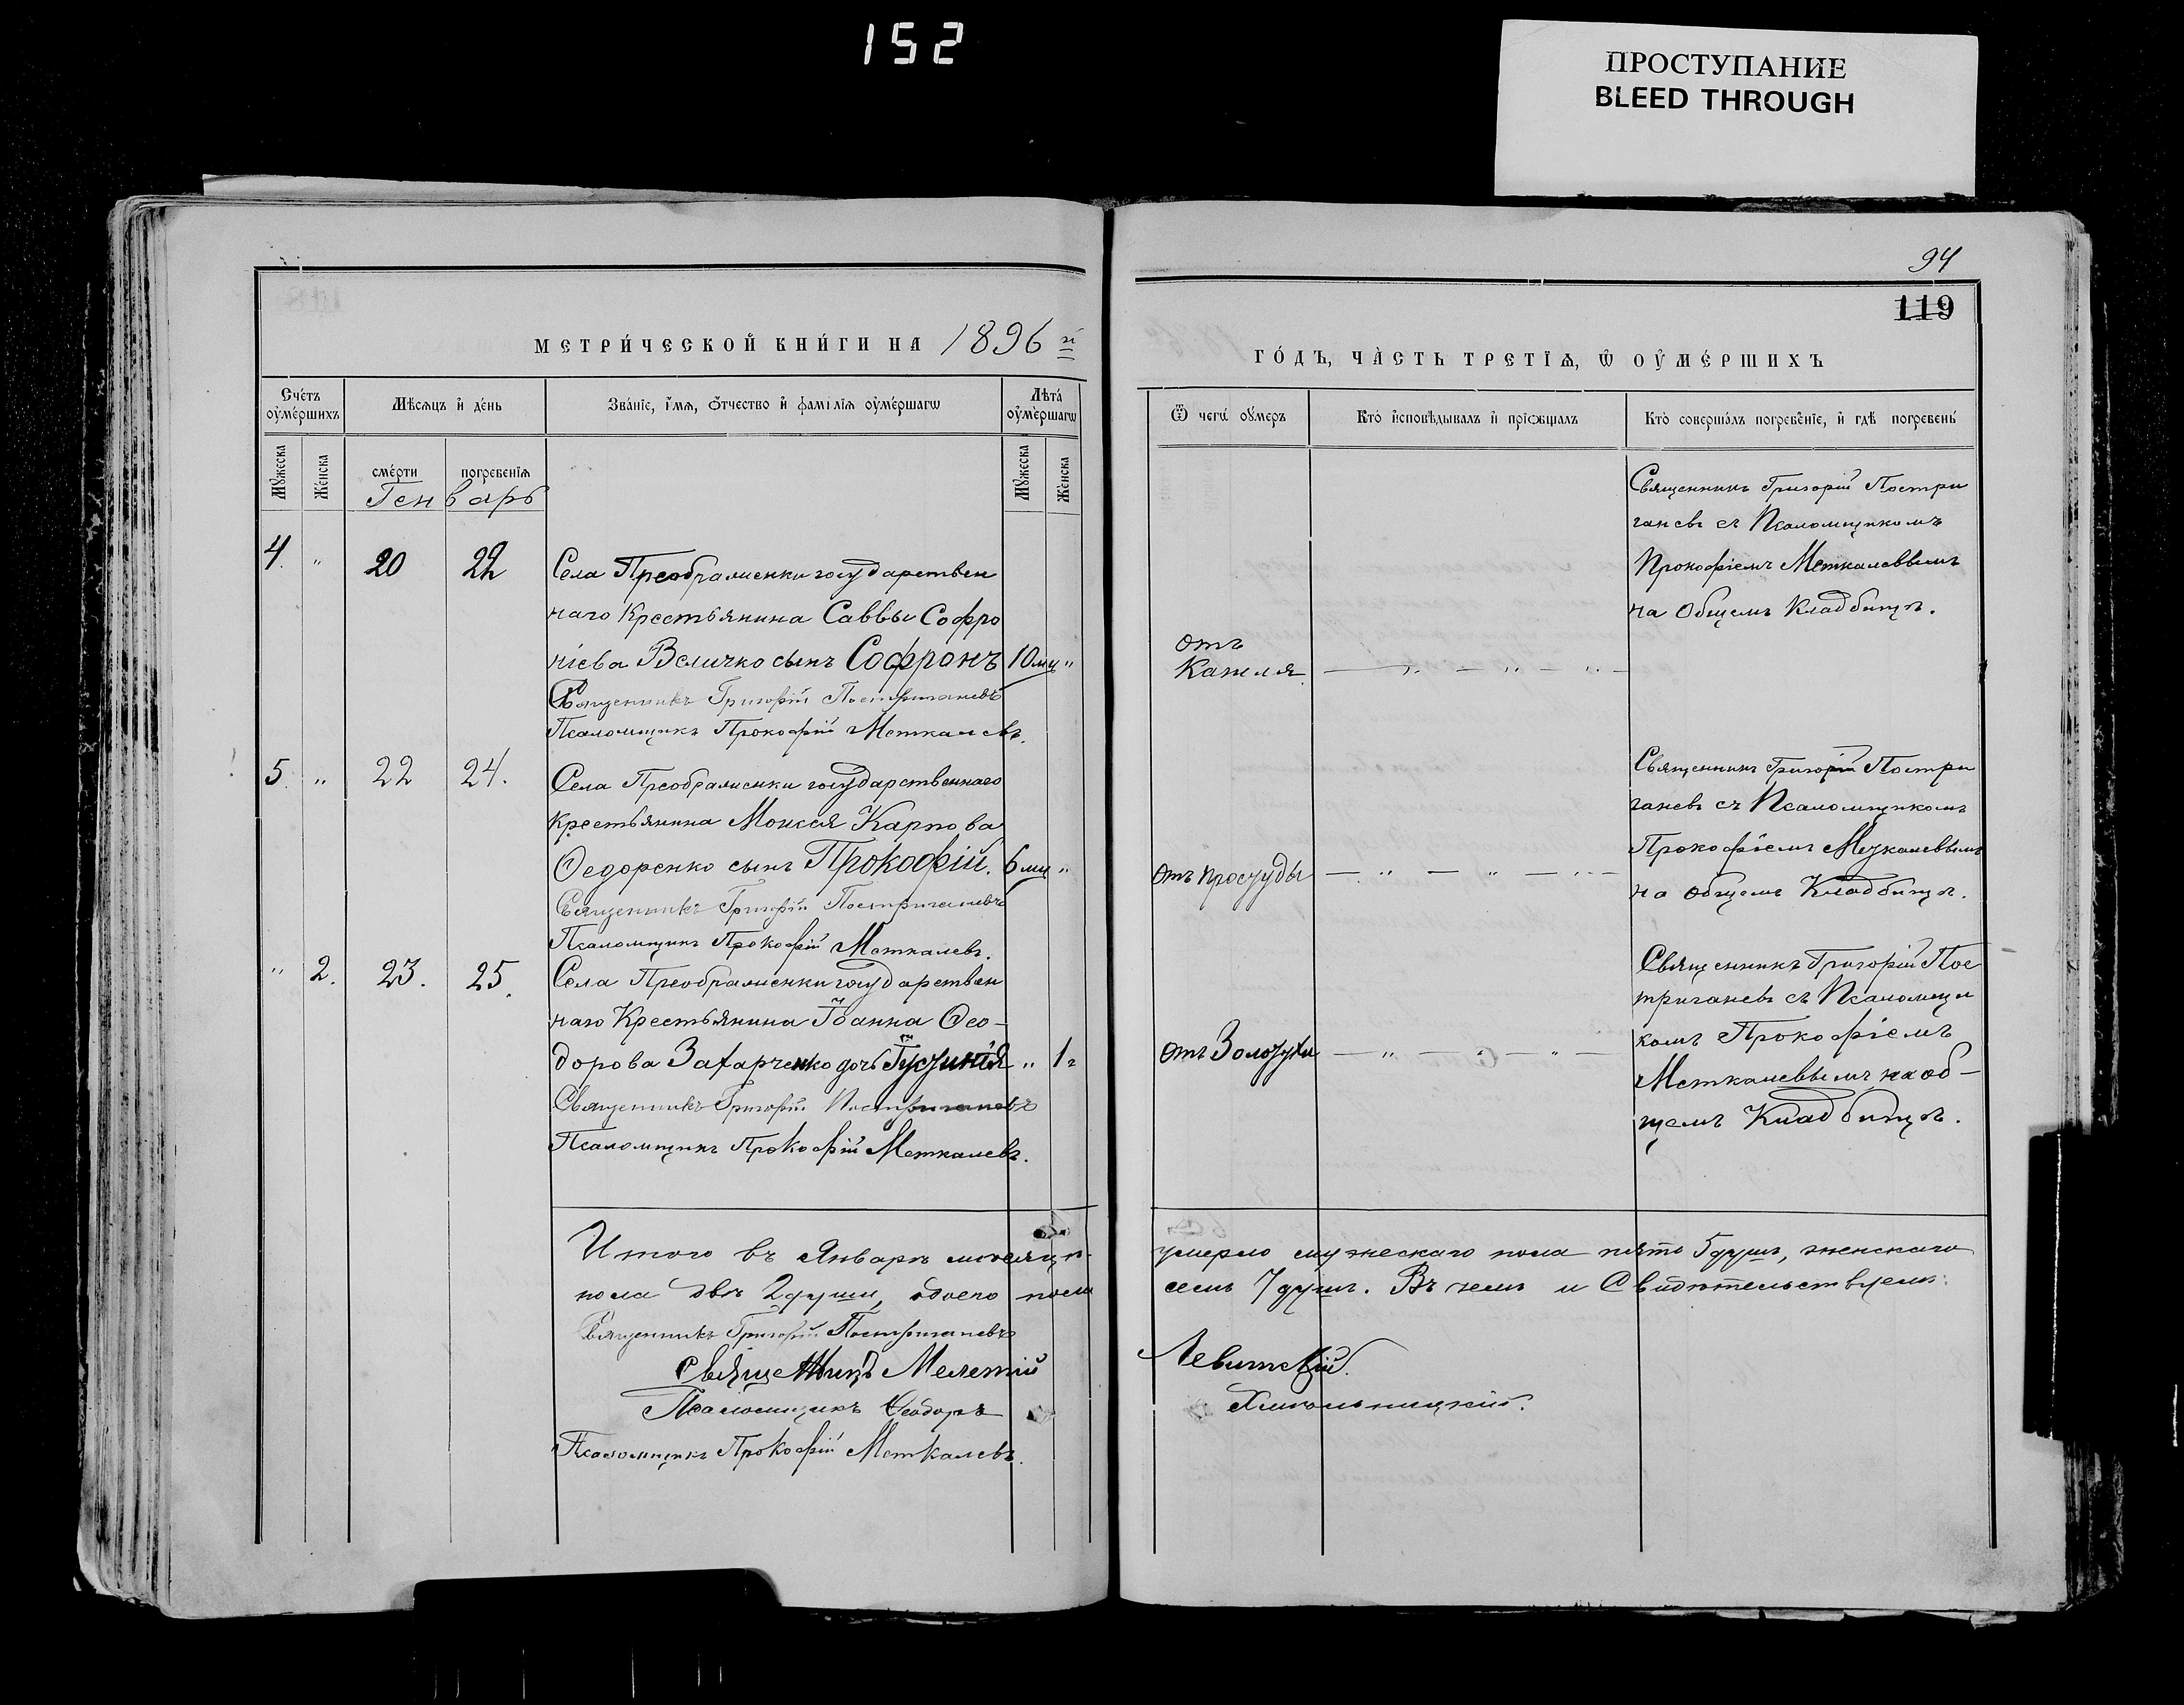 152
ПРОСТУПАНИЕ
BLEED THROUGH
94
119
МЕТРИ́ЧЕСКОЙ КНИ́ГИ НА 1896 й
ГО́ДЪ, ЧА̀СТЬ ТРЕТІѦ, Ѡ ОУ҆МЕ́РШИХЪ
Сче́тъ оу҆ме́ршихъ
Мѣсѧцъ и҆ де́нь
Зва́нїе, и҆́мѧ, ѻ҆́тчество и҆ фамі́лїѧ оу҆ме́ршагѡ
Лѣта́ оу҆ме́ршагѡ
Ѿ чегѡ̀ оу҆́меръ
Кто̀ и҆сповѣ́дывалъ и҆ прїѡбща́лъ
Кто̀ соверша́лъ погребе́нїе, и҆ гдѣ̀ погребены̀
Мꙋ́жеска
Же́нска
сме́рти
погребе́нїѧ
Мꙋ́жеска
Же́нска
Генварь
4. " 20 22
Села Преображенки государствен
наго Крестьянина Саввы Софро
ніева Величко сынъ Софронъ 10 мц "
Священникъ Григорій Постригачевъ
Псаломщикъ Прокофій Меткалевъ.
отъ
Кашля.
Священникъ Григорій Постри
гачевъ съ Псаломщикомъ
Прокофіемъ Меткалеввымъ
на Общемъ Кладбищѣ.
5. " 22 24.
Села Преображенки государственнаго
Крестьянина Моисея Карпова
Ѳедоренко сынъ Прокофій. 6 мц "
Священникъ Григорій Постригачевъ
Псаломщикъ Прокофій Меткалевъ.
отъ простуды
Священникъ Григорій Постри
гачевъ съ Псаломщикомъ
Прокофіемъ Меткалевымъ
на общемъ Кладбищѣ.
" 2. 23. 25.
Села Преображенки государствен
наго Крестьянина Іоанна Ѳео-
дорова Захарченко дочь Іустинія " 1 г
Священникъ Григорій Постригачевъ
Псаломщикъ Прокофій Меткалевъ.
отъ Золотухи
Священникъ Григорій Пос
тригачевъ съ Псаломщи
комъ Прокофіемъ
Меткалевымъ на об-
щемъ Кладбищѣ.
Итого въ Январѣ мѣсяцѣ умерло мужескаго пола пять 5 душъ, женскаго
пола двѣ 2 души, обоего пола семь 7 душъ. Въ чемъ и Свидѣтельствуемъ:
Священникъ Григорій Постригачевъ
Священникъ Мелетій Левитскій.
Псаломщикъ Ѳеодоръ Хмѣльницкій.
Псаломщикъ Прокофій Меткалевъ.